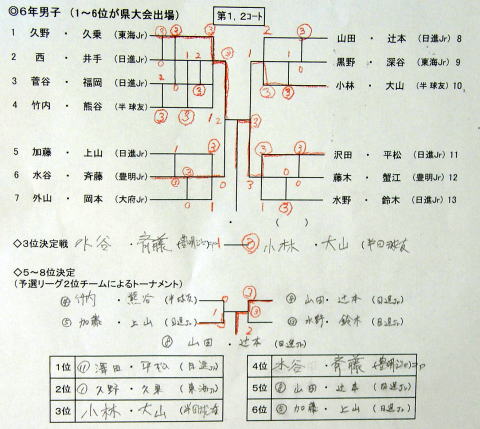 ◎6年男子（1～6位が県大会出場） 第1，2コート
1 久野 ・ 久乗 (東海Jr)
2 西 ・ 井手 (日進Jr)
3 菅谷 ・ 福岡 (日進Jr)
4 竹内 ・ 熊谷 (半球友)
5 加藤 ・ 上山 (日進Jr)
6 水谷 ・ 斉藤 (豊明Jr)
7 外山 ・ 岡本 (大府Jr)
山田 ・ 辻本 (日進Jr) 8
黒野 ・ 深谷 (東海Jr) 9
小林 ・ 大山 (半球友) 10
沢田 ・ 平松 (日進Jr) 11
藤木 ・ 蟹江 (豊明Jr) 12
水野 ・ 鈴木 (日進Jr) 13
・ ( )
◇3位決定戦 水谷 ・ 斉藤 (豊明Jr) 1 ③ 小林 ・ 大山 (半田球友)
◇5～8位決定
(予選リーグ2位チームによるトーナメント)
④ 竹内 ・ 熊谷 (半球友) ⑧ 山田 ・ 辻本 (日進Jr)
⑤ 加藤 ・ 上山 (日進Jr) ⑬ 水野 ・ 鈴木 (日進Jr)
⑧ 山田 ・ 辻本 (日進Jr)
1位 ⑪ 澤田 ・ 平松 (日進Jr)
2位 ① 久野 ・ 久乗 (東海Jr)
3位 小林 ・ 大山 (半田球友)
4位 水谷 ・ 斉藤 (豊明Jr)
5位 ⑧ 山田 ・ 辻本 (日進Jr)
6位 ⑤ 加藤 ・ 上山 (日進Jr)